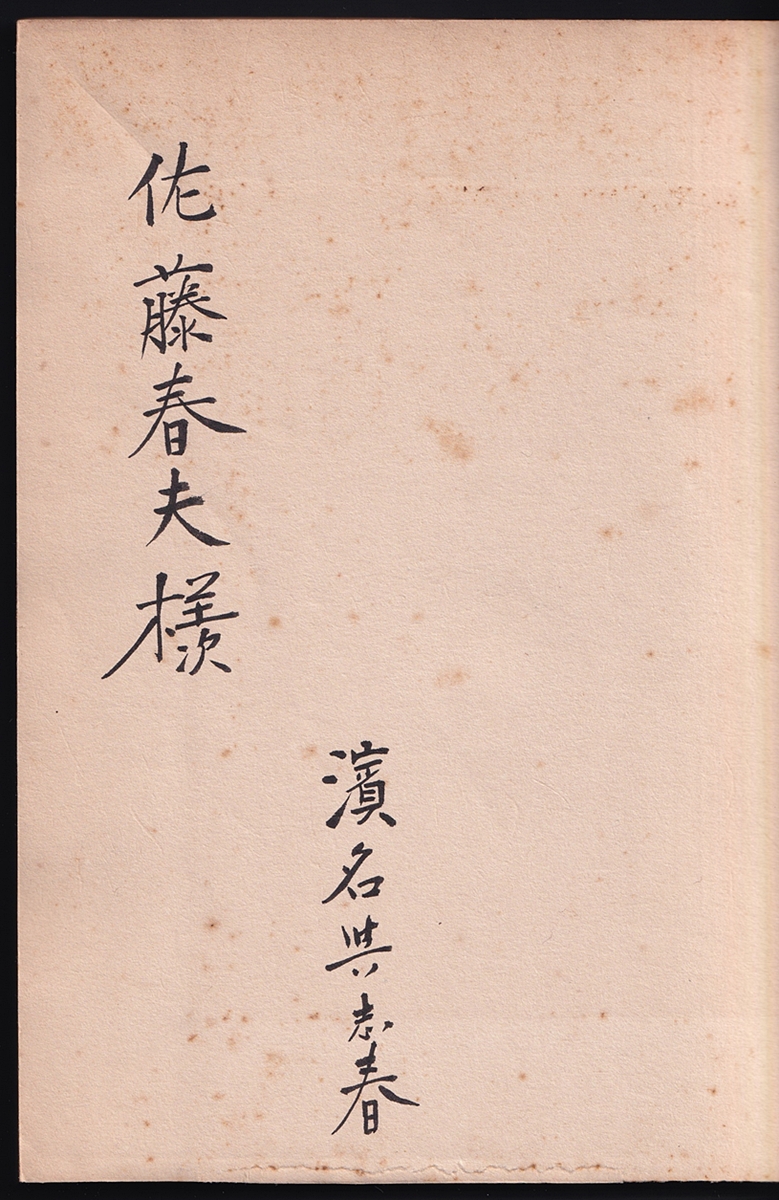 佐藤春夫様
濱名與志春